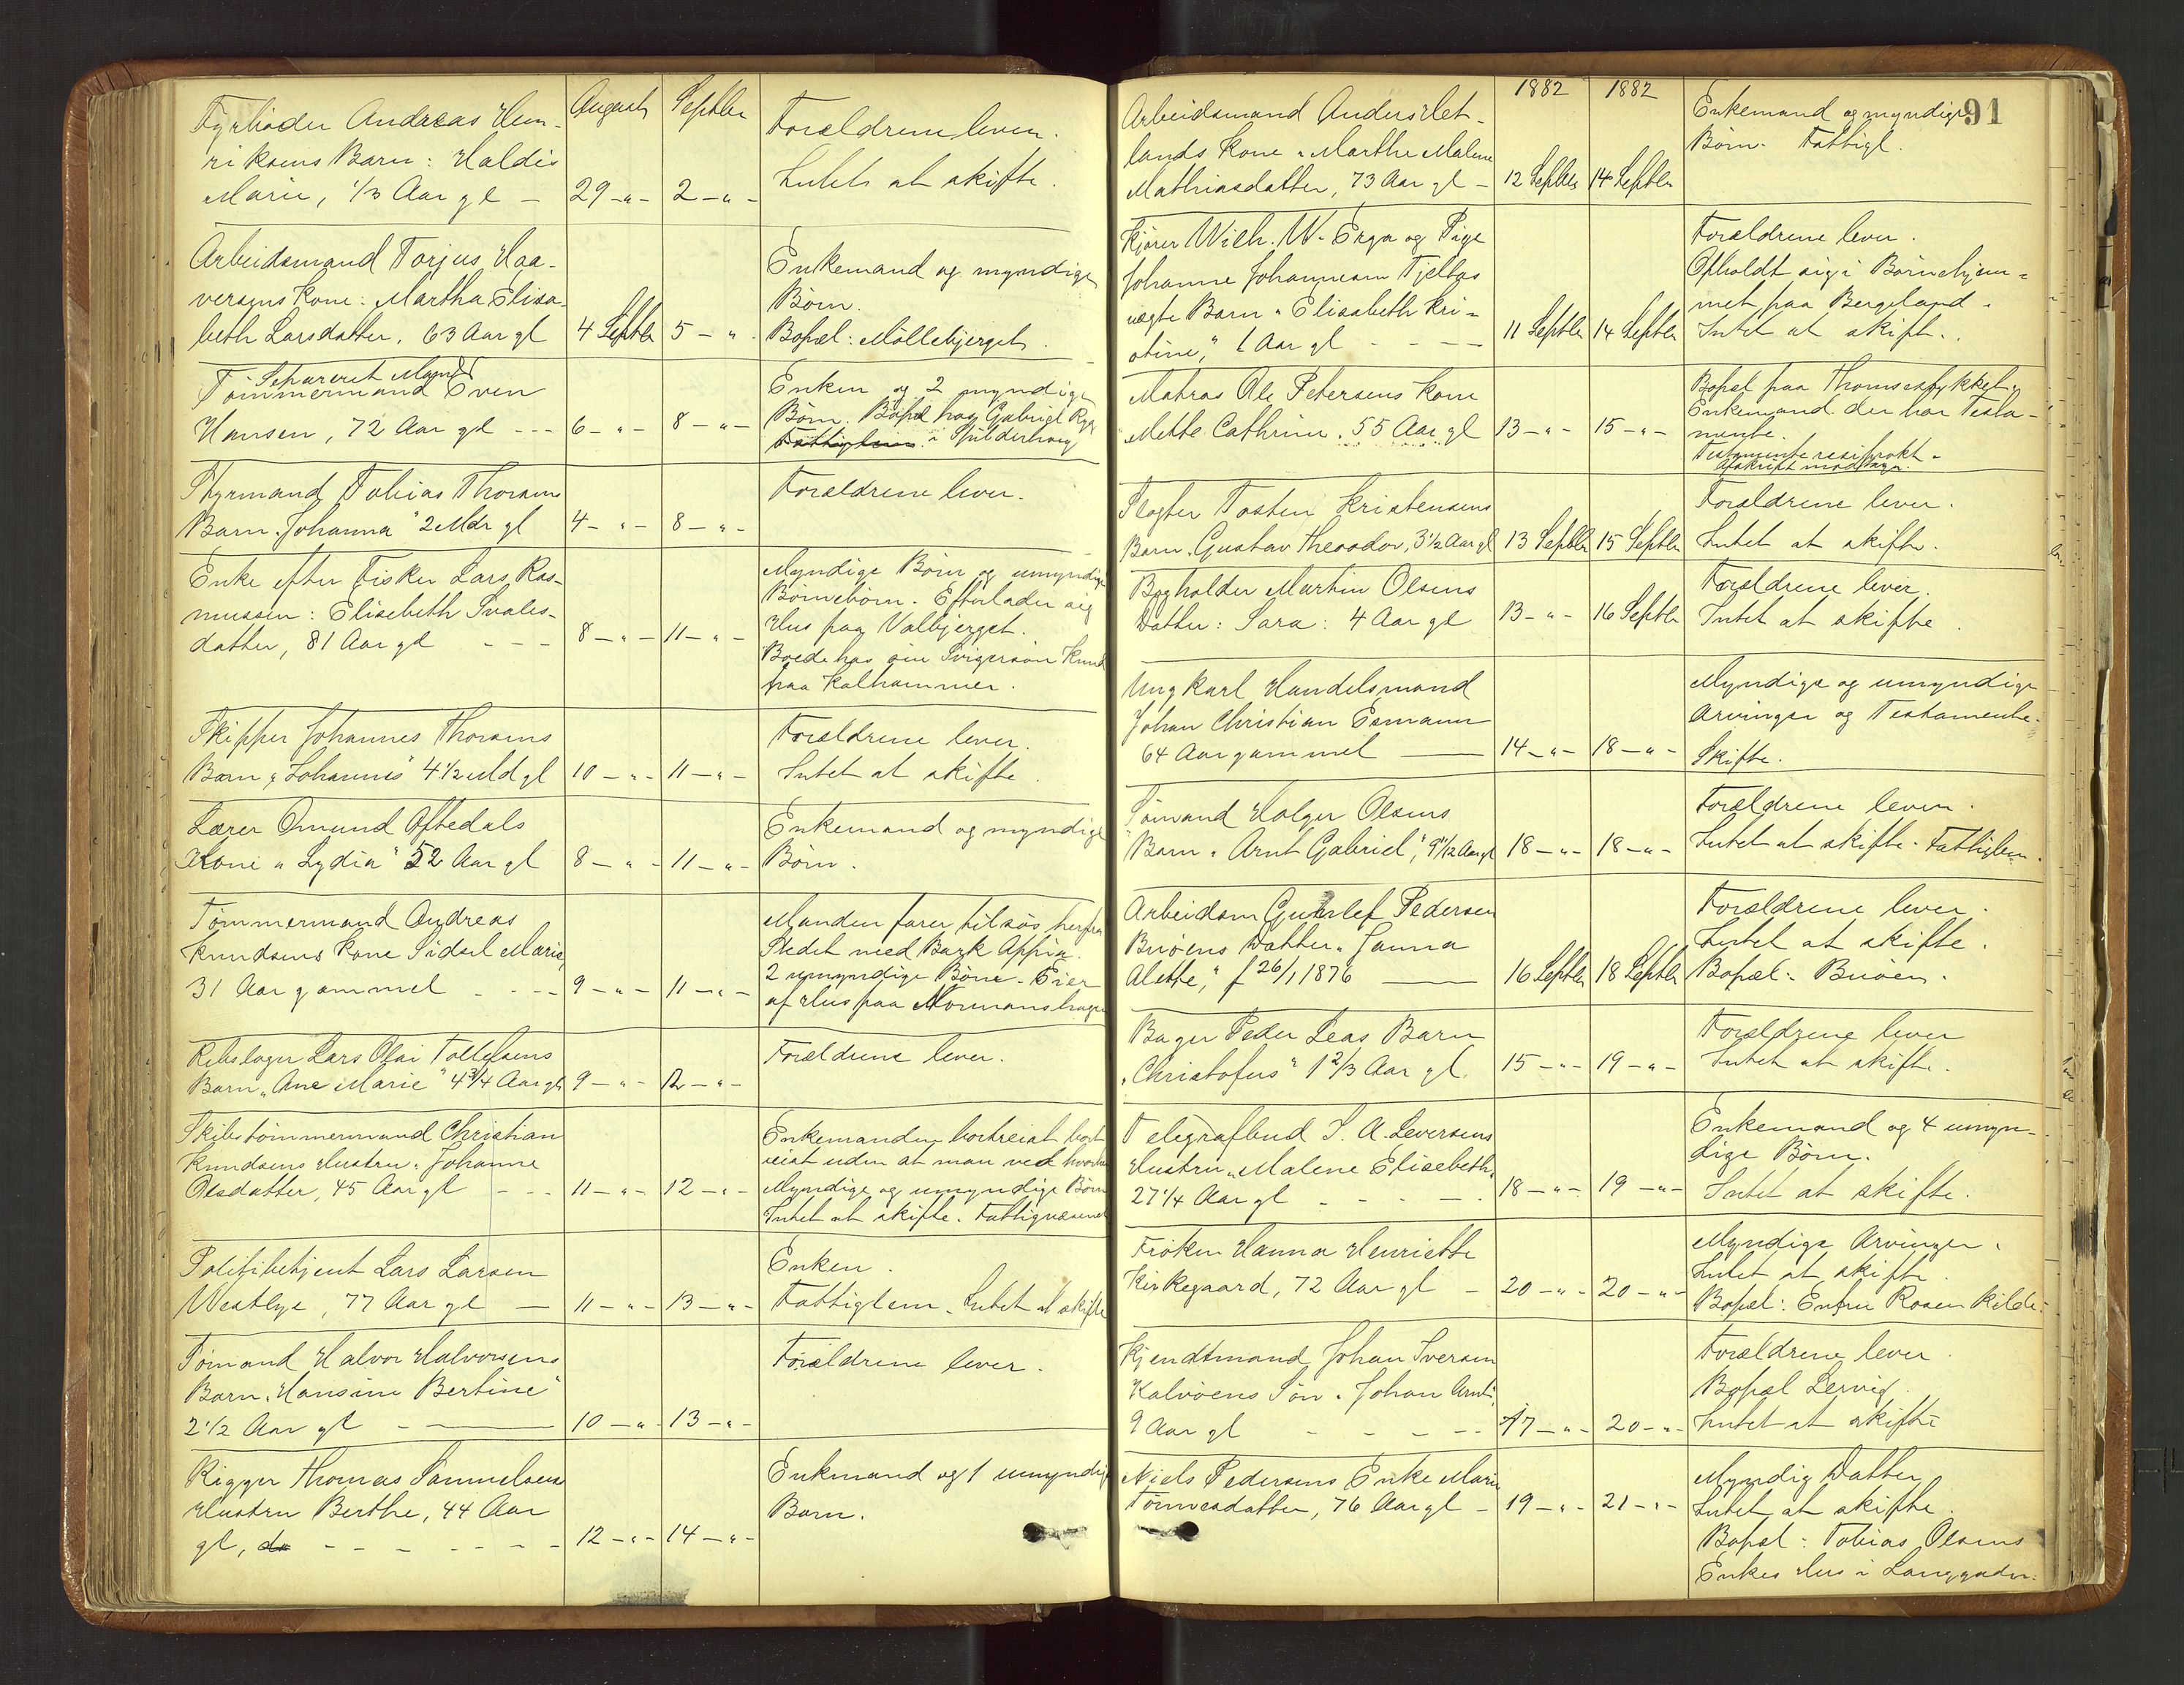 August Septbr
Fyrbøder Andreas Hen-
riksens Barn: Haldis
Marie, 1/3 Aar gl – 29 –"– 2 –"–
Forældrene lever.
Intet at skifte.
Arbeidsmand Torjus Haa-
versens Kone: Martha Elisa-
beth Larsdatter, 63 Aar gl 4 Septbr 5 – "
Enkemand og myndige
Børn.
Bopæl: Møllebjerget.
Separeret Mand
Tømmermand Even
Hansen, 72 Aar gl --- 6 –"– 8 –"–
Enken og 2 myndige
Børn. Bopæl hos Gabriel
Fattiglem i Spilderhaug
Styrmand Tobias Thorsens
Barn "Johanna" 2 Mdr gl 4 –"– 8 –"–
Forældrene lever.
Enke efter Fisker Lars Ras-
mussen: Elisebeth Svales-
datter, 81 Aar gl --- 8 –"– 11 –"–
Myndige Børn og umyndige
Børnebørn. Efterlader sig
Hus paa Valbjerget.
Boede hos sin Svigersøn Knud
paa Kalhammer.
Skipper Johannes Thorsens
Barn "Johannes" 4 1/2 Md gl 10 –"– 11 –"–
Forældrene lever.
Intet at skifte.
Lærer Omund Aftedals
Kone "Lydia" 52 Aar gl 8 –"– 11 –"–
Enkemand og myndige
Børn.
Tømmermand Andreas
Knudsens Kone Sidsel Marie,
31 Aar gammel --- 9 –"– 11 –"–
Manden farer tilsøs herfra
Stedet med Bark Appia.
2 umyndige Børn. Eier
af Hus paa Normanshagen
Rebslager Lars Olai Tollefsens
Barn "Ane Marie" 4 3/4 Aar gl 9 –"– 12 –"–
Forældrene lever.
Skibstømmermand Christian
Knudsens Hustru "Johanne
Olsdatter, 45 Aar gl --- 11 –"– 12 –"–
Enkemanden bortreist bort
reist uden at man ved hvorhen
Myndige og umyndige Børn
Intet at skifte. Fattigvæsenet
Politibetjent Lars Larsen
Westbye, 77 Aar gl – 11 –"– 13 –"–
Enken.
Fattiglem. Intet at skifte
Sømand Halvor Halvorsens
Barn "Hansine Bertine"
2 1/2 Aar gl – 10 –"– 13 –"–
Forældrene lever.
Rigger Thomas Samuelsens
Hustru Berthe, 44 Aar
gl, do ------ 12 –"– 14 –"–
Enkemand og 1 umyndig
Barn.
1882 1882
91
Arbeidsmand Anders Het-
lands Kone "Marthe Malene
Mathiasdatter, 73 Aar gl – 12 Septbr 14 Septbr
Enkemand og myndige
Børn. Fattigt.
Kjører Wilh. W. Erga og Pige
Johanne Johannesen Tjeltas
uægte Barn "Elisabeth Kri-
stine," 1 Aar gl ---- 11 Septbr 14 Septbr
Forældrene lever.
Opholdt sig i Børnehjem-
met paa Bergeland.
Intet at skifte.
Matros Ole Petersens Kone
"Mette Cathrine. 55 Aar gl 13 –"– 15 –"–
Bopæl paa Thomsestykket
Enkemand der har Testa-
mente.
Testamente resiprokt.
Afskrift modtagen.
Slagter Tosten Kristensens
Barn "Gustav Theodor, 3 1/2 Aar gl 13 Septbr 15 Septbr
Forældrene lever.
Intet at skifte.
Bogholder Martin Olsens
Datter: Sara: 4 Aar gl 13 –"– 16 Septbr
Forældrene lever.
Intet at skifte.
Ungkarl Handelsmand
Johan Christian Esmann
64 Aar gammel – 14 –"– 18 –"–
Myndige og umyndige
Arvinger og Testamente.
Skifte.
Sømand Holger Olsens
Barn "Arnt Gabriel," 9 1/12 Aar gl 18 –"– 18 –"–
Forældrene lever.
Intet at skifte. Fattiglem.
Arbeidsm Gunlef Pedersen
Buøens Datter "Janna
Alette," f 26/1 1876 – 16 Septbr 18 Septbr
Forældrene lever.
Intet at skifte.
Bopæl: Buøen.
Bager Peder Leas Barn
"Christofus" 1 2/3 Aar gl. 15 –"– 19 –"–
Forældrene lever
Intet at skifte.
Telegrafbud S. A. Seversens
Hustru "Malene Elisebeth,
27 1/4 Aar gl ---- 18 –"– 19 –"–
Enkemand og 4 umyn-
dige Børn.
Intet at skifte.
Frøken Hanna Henriette
Kirkegaard, 72 Aar gl – 20 –"– 20 –"–
Myndige Arvinger.
Intet at skifte.
Bopæl: Enfru Rosenkilde.
Kjendtmand Johan Iversen
Kalvøens Søn "Johan Arnt",
9 Aar gl ---- 17 –"– 20 –"–
Forældrene lever.
Bopæl Lervig.
Intet at skifte
Niels Pedersens Enke Marie
Tønnesdatter, 76 Aar gl – 19 –"– 21 –"–
Myndig Datter
Intet at skifte.
Bopæl: Tobias Olsens
Enkes Hus i Langgaden.